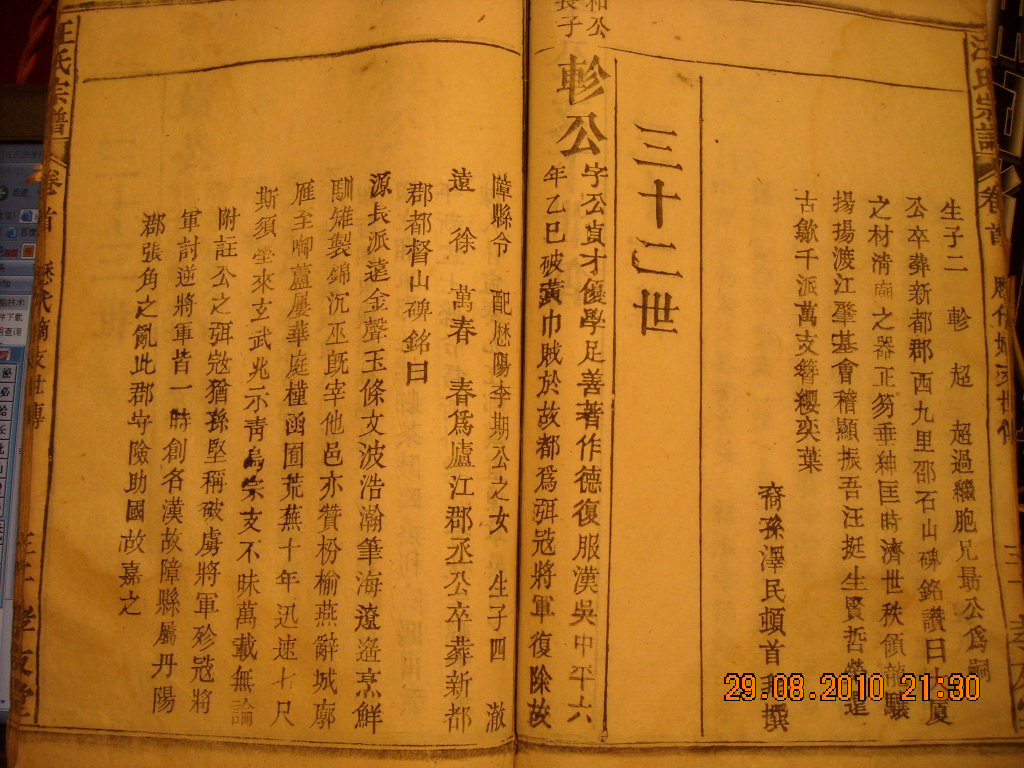 汪氏宗譜
卷首
生子二 軫 超 超過繼胞兄勗公爲嗣
公卒葬新都郡西九里邵石山碑銘讚曰 廈
之材清廟之器正笏垂紳匡時濟世秩領龍驤
揚揚渡江肇基會稽顯振吾汪挺生賢哲 遠
古歙千派萬支簪纓奕葉
裔孫澤民頓首 撰
三十二世
和公
長子
軫公
字公貞才優學足善著作德復服漢吳中平六
年乙巳破黃巾賊於故都爲弭冦將軍復除故
障縣令 配歷陽李期公之女 生子四 澈
遠 徐 萬春 春爲廬江郡丞公卒葬新都
郡都督山碑銘曰
源長派遠金聲玉條文波浩瀚筆海遼遙烹鮮
馴雉製錦沉巫旣宰他邑亦贊枌榆燕辭城廓
雁至啣蘆屢華庭槿函囿荒蕪十年迅速七尺
斯須塋來玄武兆示靑烏宗支不昧萬載無論
附註公之弭冦猶孫堅稱破虜將軍殄冦將
軍討逆將軍皆一時創名漢故障縣屬丹陽
郡張角之亂此郡守險助國故嘉之
汪氏宗譜
卷首
歷代
世傳
29.08.2010 21:30